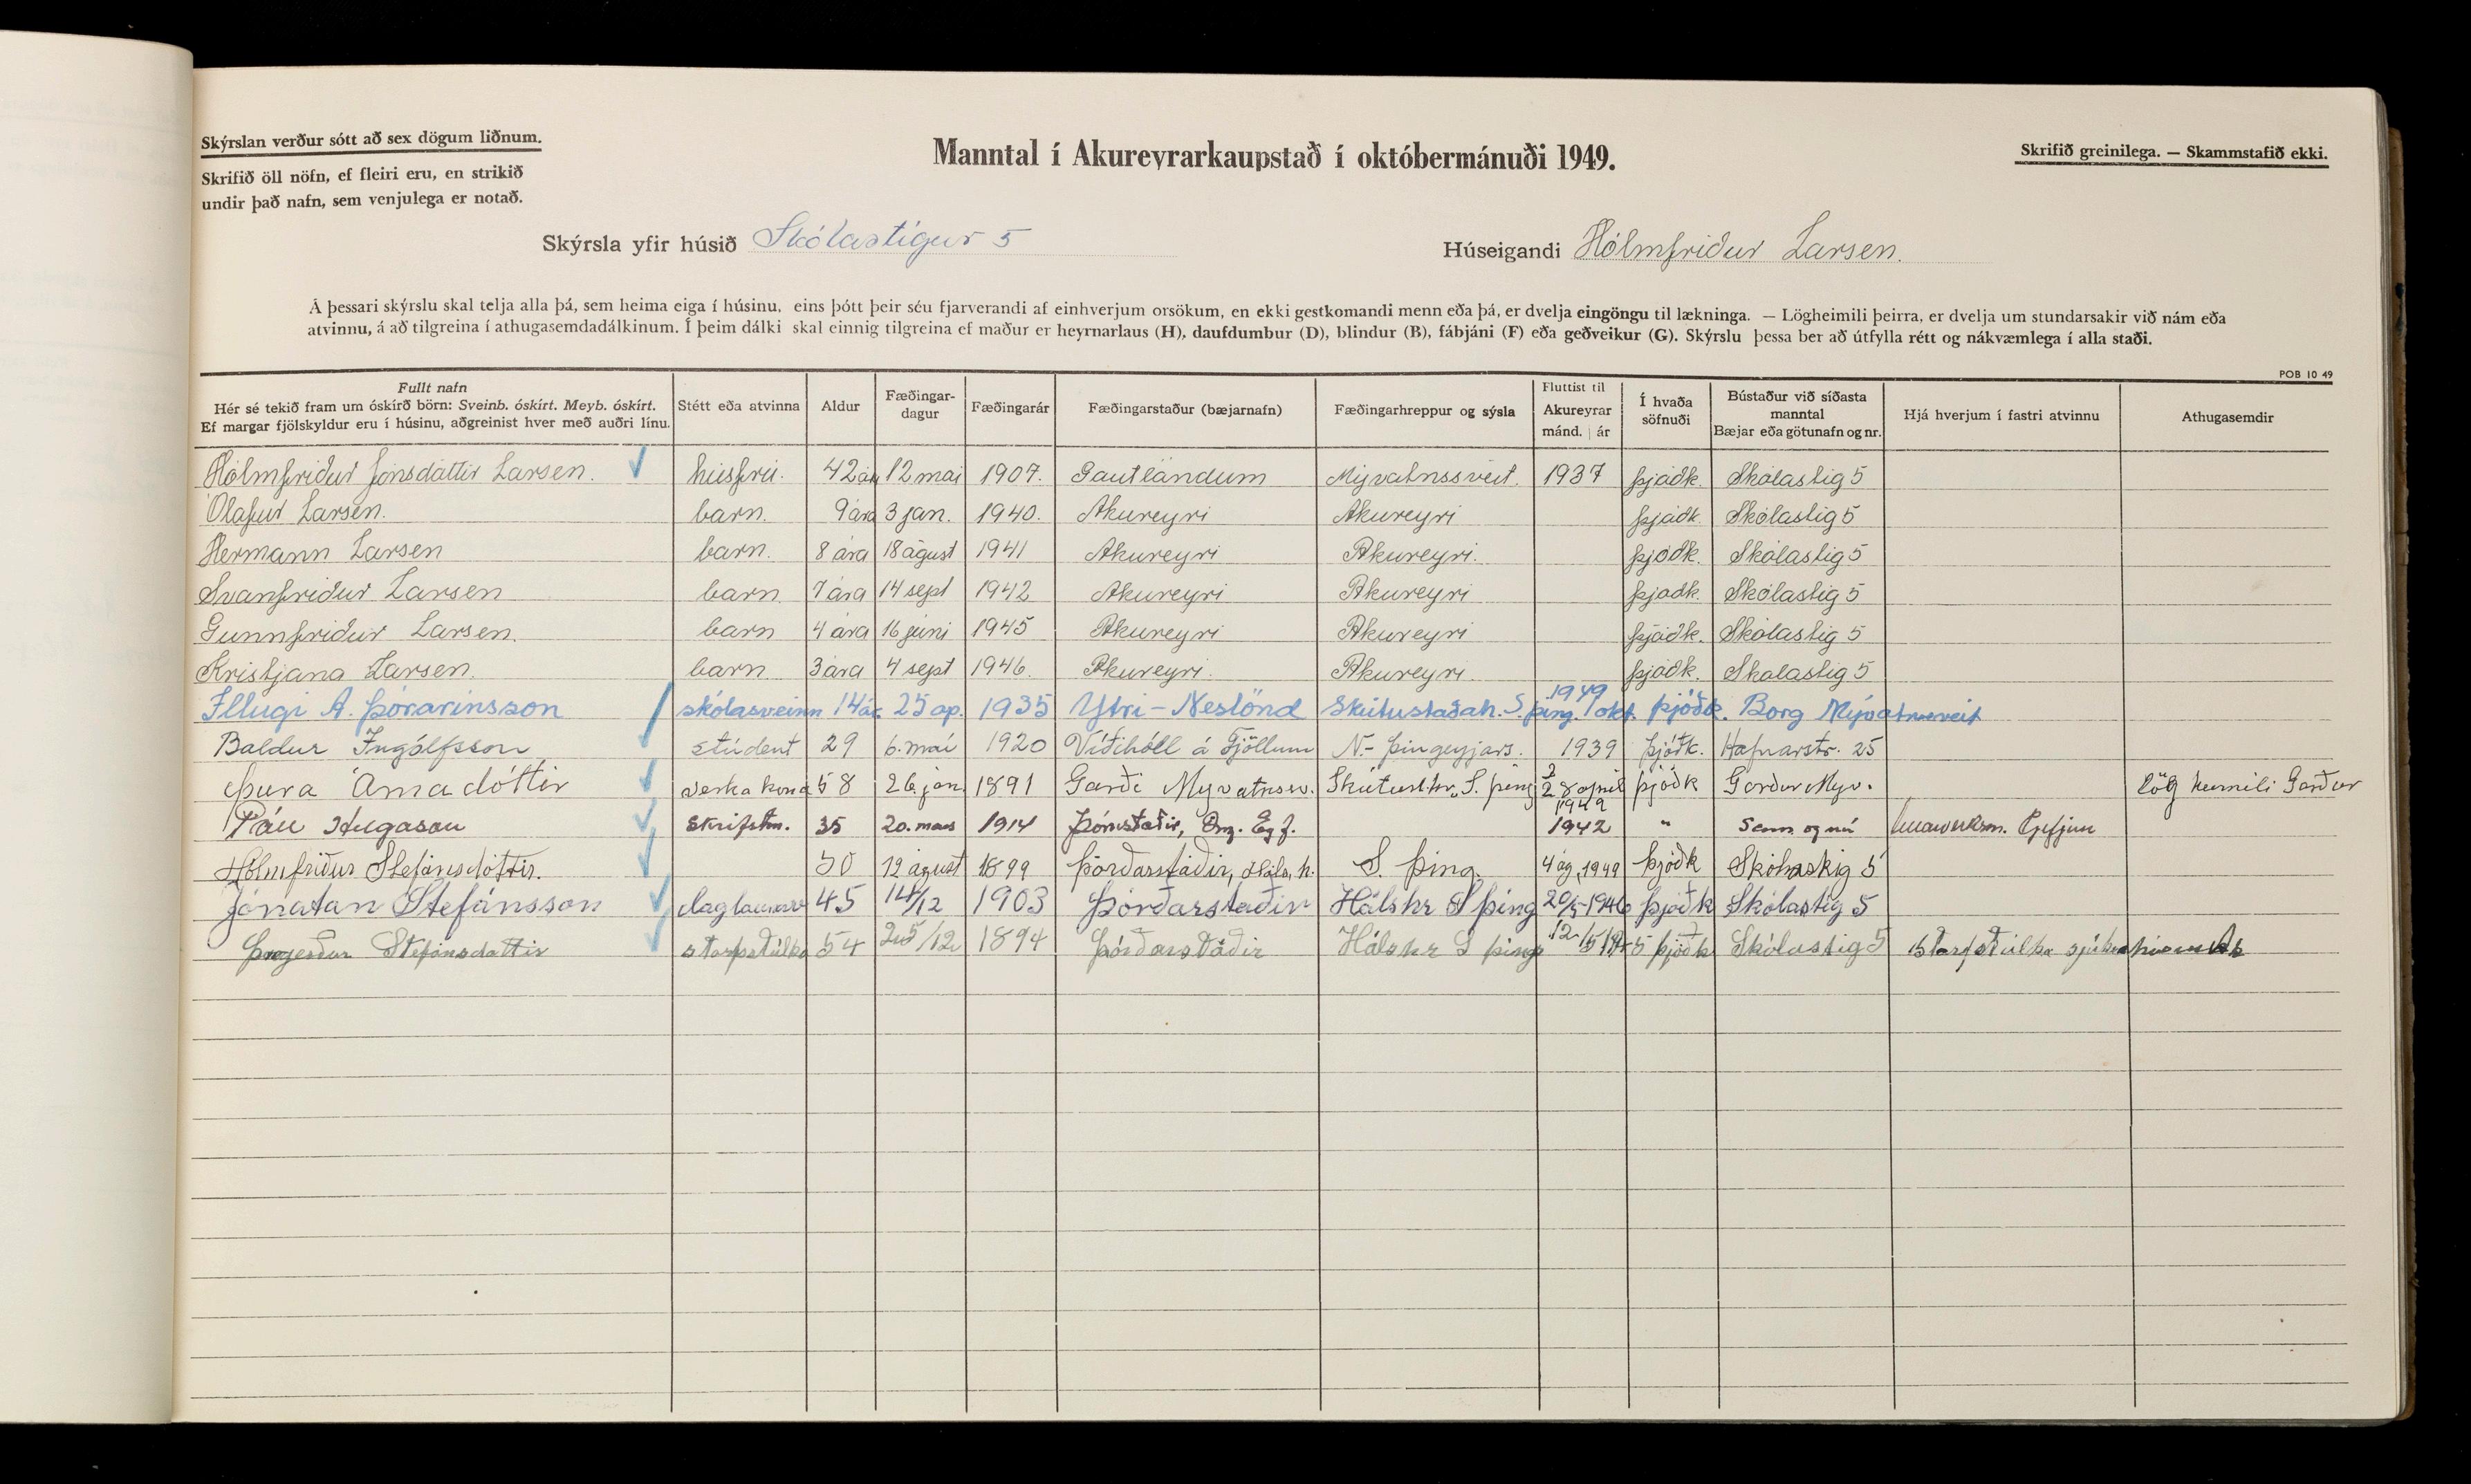 Skýrslan verður sótt að sex dögum liðnum.
Skrifið öll nöfn, ef fleiri eru, en strikið
undir það nafn, sem venjulega er notað.
Manntal í Akureyrarkaupstað í októbermánuði 1949.
Skrifið greinilega. — Skammstafið ekki.
Skýrsla yfir húsið Skólastígur 5
Húseigandi Hólmfriður Larsen.
Á þessari skýrslu skal telja alla þá, sem heima eiga í húsinu, eins þótt þeir séu fjarverandi af einhverjum orsökum, en ekki gestkomandi menn eða þá, er dvelja eingöngu til lækninga. — Lögheimili þeirra, er dvelja um stundarsakir við nám eða
atvinnu, á að tilgreina í athugasemdadálkinum. Í þeim dálki skal einnig tilgreina ef maður er heyrnarlaus (H), daufdumbur (D), blindur (B), fábjáni (F) eða geðveikur (G). Skýrslu þessa ber að útfylla rétt og nákvæmlega í alla staði.
POB 10 49
Fullt nafn
Hér sé tekið fram um óskírð börn: Sveinb. óskírt. Meyb. óskírt.
Ef margar fjölskyldur eru í húsinu, aðgreinist hver með auðri línu.
Stétt eða atvinna
Aldur
Fæðingar-
dagur
Fæðingarár
Fæðingarstaður (bæjarnafn)
Fæðingarhreppur og sýsla
Fluttist til
Akureyrar
mánd. ár
Í hvaða
söfnuði
Bústaður við síðasta
manntal
Bæjar eða götunafn og nr.
Hjá hverjum í fastri atvinnu
Athugasemdir
Hólmfriður Jónsdóttir Larsen. húsfrú. 42 ára 12 mai 1907. Gautlöndum Mývatnssveit. 1937 þjóðk. Skólastig 5
Ólafur Larsen. barn. 9 ára 3 jan. 1940. Akureyri Akureyri þjóðk. Skólastig 5
Hermann Larsen barn. 8 ára 18 ágúst 1941 Akureyri Akureyri. þjóðk. Skólastig 5
Svanfriður Larsen barn. 7 ára 14 sept 1942 Akureyri Akureyri þjóðk. Skólastig 5
Gunnfriður Larsen. barn 4 ára 16 júni 1945 Akureyri Akureyri þjóðk. Skólastig 5
Kristjana Larsen. barn 3 ára 4 sept 1946 Akureyri. Akureyri. þjóðk. Skólastig 5
Illugi A. Þórarinsson skólasveinn 14 ár. 25 ap. 1935 Ytri-Neslönd Skútustaðah. S. þing. 1949 1 okt. þjóðk. Borg Mývatnssveit
Baldur Ingólfsson stúdent 29 6. maí 1920 Víðihóll á Fjöllum N.-Þingeyjars. 1939 þjóðk. Hafnarstr. 25
Þura Árnadóttir verkakona 58 26. jan. 1891 Garði Mývatnssv. Skútust.hr., S. þing 28 apríl 1949 þjóðk Garður Mýv. lögheimili Garður
Páll Helgason skrifstm. 35 20. mars 1914 Þórustaðir, Öng. Eyf. 1942 " Sama og nú Gefjun
Hólmfríður Stefánsdóttir. 50 12 ágúst 1899 Þórðarstaðir, Háls. h. S. þing. 4 ág. 1949 þjóðk Skólastig 5
Jónatan Stefánsson daglaunav 45 14/12 1903 Þórðarstaðir Hálshr S þing 20/5-1946 þjóðk Skólastig 5
Þorgerður Stefánsdóttir starfstúlka 54 25/12 1894 Þórðarstaðir Hálshr S þing þjóðk Skólastig 5 starfstúlka